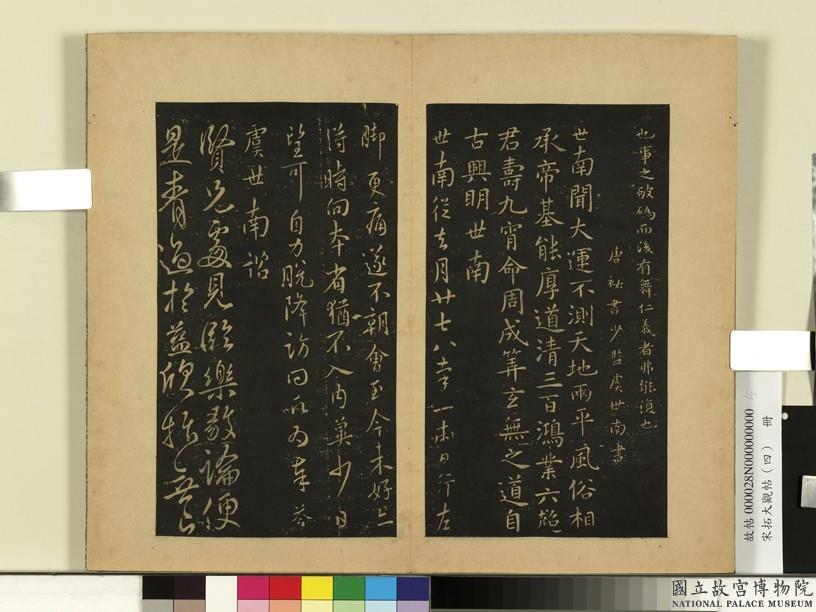 也事之破碼而後有舞仁義者弗能復也
唐秘書少監虞世南書
世南聞大運不測天地兩平風俗相
承帝基能厚道清三百鴻業六超
君壽九霄命周成筭玄無之道自
古興明世南
世南從去月廿七八率一兩日行左
脚更痛遂不朝會至今未好亦
得時向本省猶不入內冀少日
望可自力脫降訪問願為奉答
虞世南諮
賢兄處見臨樂毅論便
是青過於益欣抵
故帖000028N000000000
宋拓大觀帖（四） 冊
國立故宮博物院
NATIONAL PALACE MUSEUM